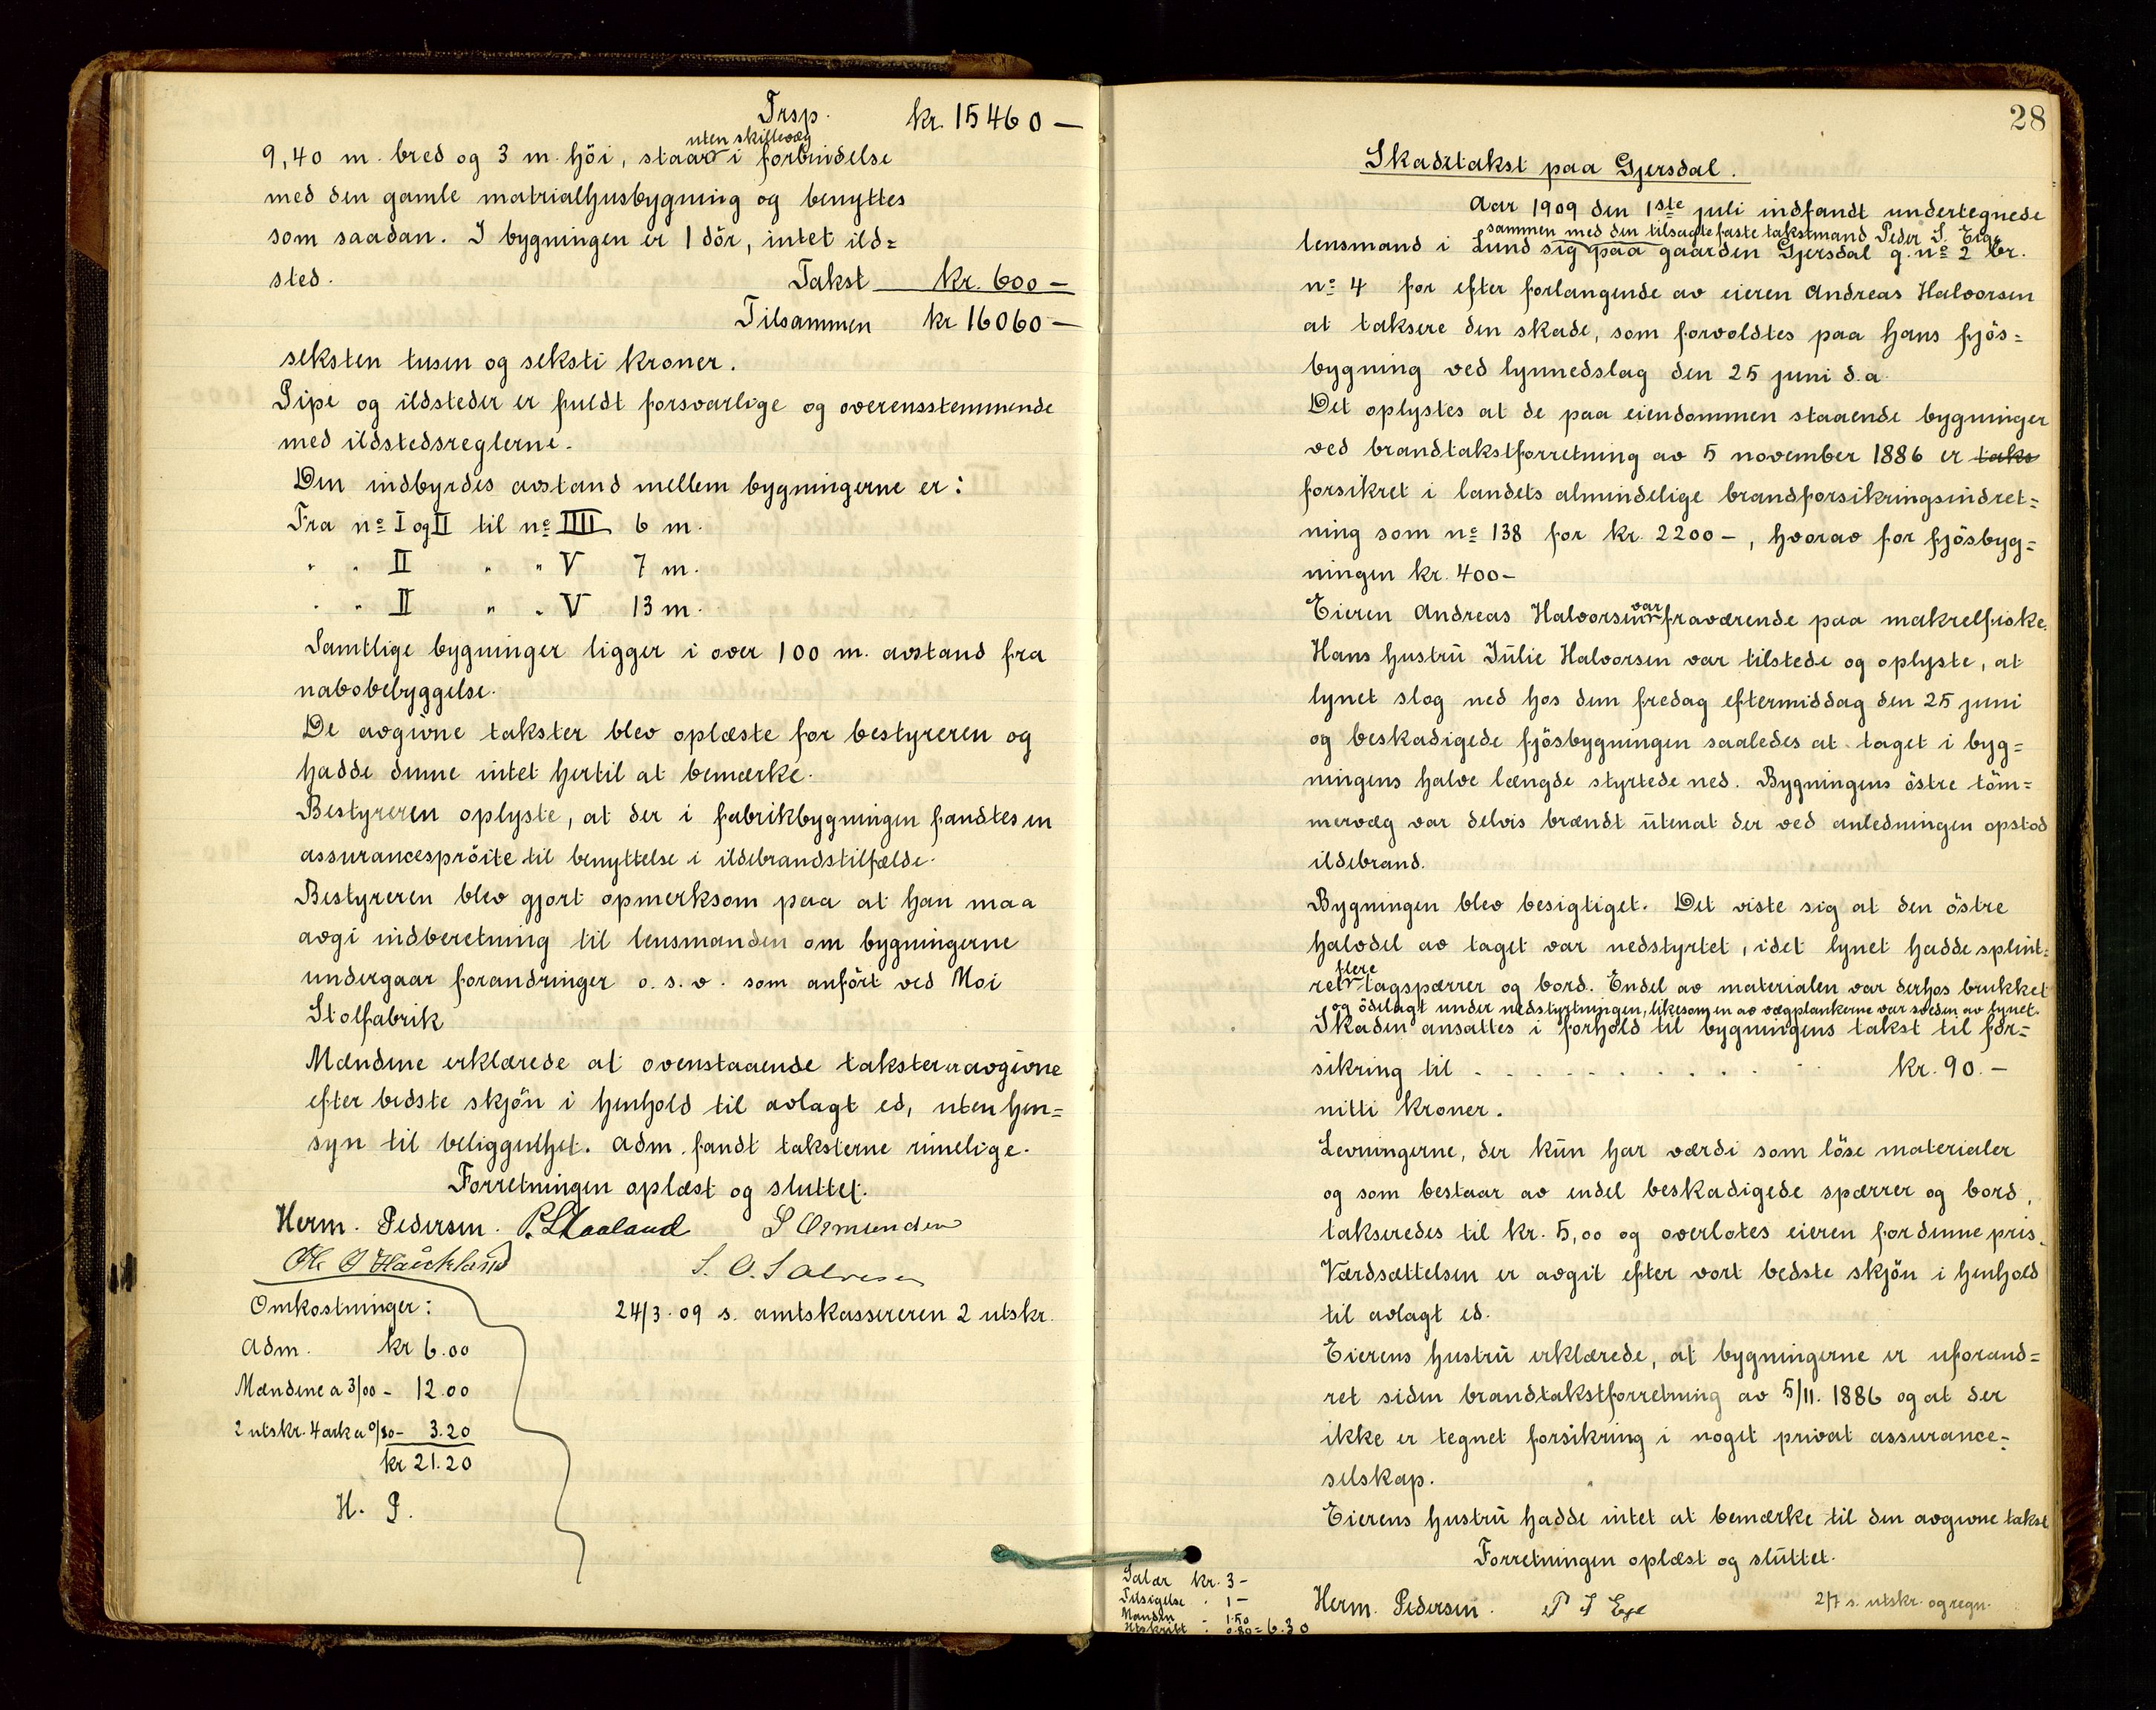 Trsp. kr. 15460 —
uten skillevæg
9,40 m. bred og 3 m. höi, staar i forbindelse
med den gamle matrialhusbygning og benyttes
som saadan. I bygningen er 1 dör, intet ild=
sted. Takst kr. 600 —
Tilsammen kr 16060 —
seksten tusen og seksti kroner.
Pipe og ildsteder er fuldt forsvarlige og overensstemmende
med ildstedsreglerne.
Den indbyrdes avstand mellem bygningerne er:
Fra no I og II til no IIII 6 m.
" " II " " V 7 m.
" " II " " V 13 m.
Samtlige bygninger ligger i over 100 m. avstand fra
nabobebyggelse.
De avgivne takster blev oplæste for bestyreren og
hadde denne intet hertil at bemærke.
Bestyreren oplyste, at der i fabrikbygningen fandtes en
assurancespröite til benyttelse i ildebrandstilfælde.
Bestyreren blev gjort opmerksom paa at han maa
avgi indberetning til lensmanden om bygningerne
undergaar forandringer o. s. v. som anfört ved Moi
Stolfabrik
Mændene erklærede at ovenstaaende takster er avgivne
efter bedste skjön i henhold til avlagt ed, uten hen=
syn til beliggenhet. Adm. fandt taksterne rimelige.
Forretningen oplæst og sluttet.
Herm. Pedersen. S Osmundsen
S. O. Salvesen
Omkostninger:
24/3.09 s. amtskassereren 2 utskr.
Adm. kr 6.00
Mændene a 3/00 - 12.00
2 utskr. 4 ark a 0/80 - 3.20
kr 21.20
H. P.
28
Skadetakst paa Gjersdal.
Aar 1909 den 1ste juli indfandt undertegnede
sammen med den tilsagte faste takstmand Peder S. Eige
lensmand i Lund sig paa gaarden Gjersdal g. no 2 br.
no 4 for efter forlangende av eieren Andreas Halvorsen
at taksere den skade, som forvoldtes paa hans fjös=
bygning ved lynnedslag den 25 juni d.a.
Det oplystes at de paa eiendommen staaende bygninger
ved brandtakstforretning av 5 november 1886 er taks
forsikret i landets almindelige brandforsikringsindret=
ning som no 138 for kr. 2200 -, hvorav for fjösbyg=
ningen kr. 400 -
Eieren Andreas Halvorsen var fraværende paa makrelfiske.
Hans hustru Julie Halvorsen var tilstede og oplyste, at
lynet slog ned hos dem fredag eftermiddag den 25 juni
og beskadigede fjösbygningen saaledes at taget i byg=
ningens halve længde styrtede ned. Bygningens östre töm=
mervæg var delvis brændt utenat der ved anledningen opstod
ildebrand.
Bygningen blev besigtiget. Det viste sig at den östre
halvdel av taget var nedstyrtet, idet lynet hadde splint=
ret flere tagspærrer og bord. Endel av materialen var derhos brukket
og ödelagt under nedstyrtningen, likesom en av vægplankerne var sveden av lynet.
Skaden ansattes i forhold til bygningens takst til for=
sikring til . . . . . . . . . kr. 90. —
nitti kroner.
Levningerne, der kun har værdi som löse materialer
og som bestaar av endel beskadigede spærrer og bord,
takseredes til kr. 5,00 og overlotes eieren for denne pris.
Værdsættelsen er avgit efter vort bedste skjön i henhold
til avlagt ed.
Eierens hustru erklærede, at bygningerne er uforand=
ret siden brandtakstforretning av 5/11. 1886 og at der
ikke er tegnet forsikring i noget privat assurance=
selskap.
Eierens hustru hadde intet at bemærke til den avgivne takst
Forretningen oplæst og sluttet.
Herm. Pedersen. P S Eige 2/7 s. utskr. og regn.
Salær kr. 3 -
Tilsigelse " 1 -
Manden - 1.50
Utskrift : 0.80 = 6.30